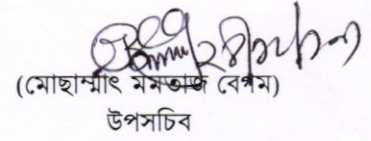 (মোছাম্মাৎ মমতাজ বেগম)
উপসচিব